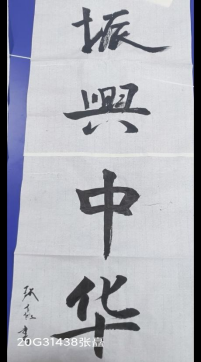 振興中华
张磊書
20G31438张磊